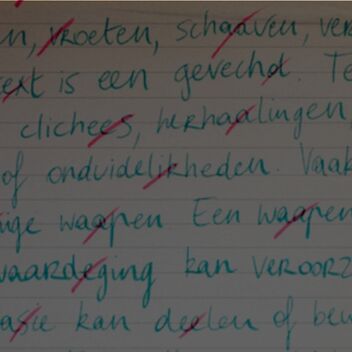 en, vroeten, schaaven, ver
text is een gevechd. Te
clichees, herhaalingen,
of onduidelikheden. Vaak
ige waapen Een waapen
vaardeging kan veroorz
asie kan deelen of